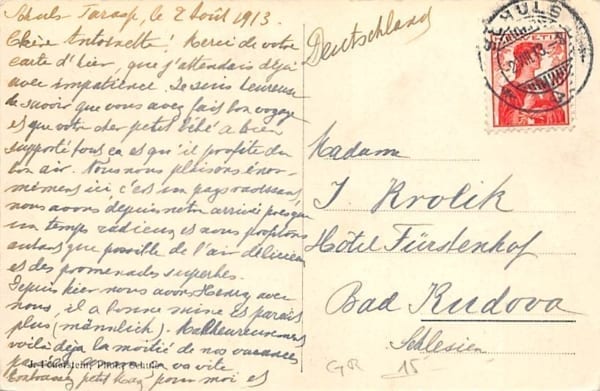 Schuls-Tarasp, le 2 Août 1913.
Chère Antoinette! Merci de votre
carte d'hier, que j'attendais déjà
avec impatience. Je suis heureuse
de savoir que vous avez fait bon voyage
et que votre cher petit bébé a bien
supporté tout ça et qu'il profite du
bon air. Nous nous plaisons énor-
mément ici c'est un pays ravissant,
nous avons depuis notre arrivée presque
un temps radieux et nous profitons
autant que possible de l'air délicieux
et des promenades superbes.
Depuis hier nous avons Henry avec
nous, il a bonne mine et paraît
plus (männlich). Malheureusement
voilà déjà la moitié de nos vacances
va vite
Embrassez petit pour moi et
J. Feuerstein, Photo, Schuls
Deutschland
SCHULS
HELVETIA
2.VIII.13
Madame
J. Krolik
Hôtel Fürstenhof
Bad Kudova
Schlesien
GR 15-